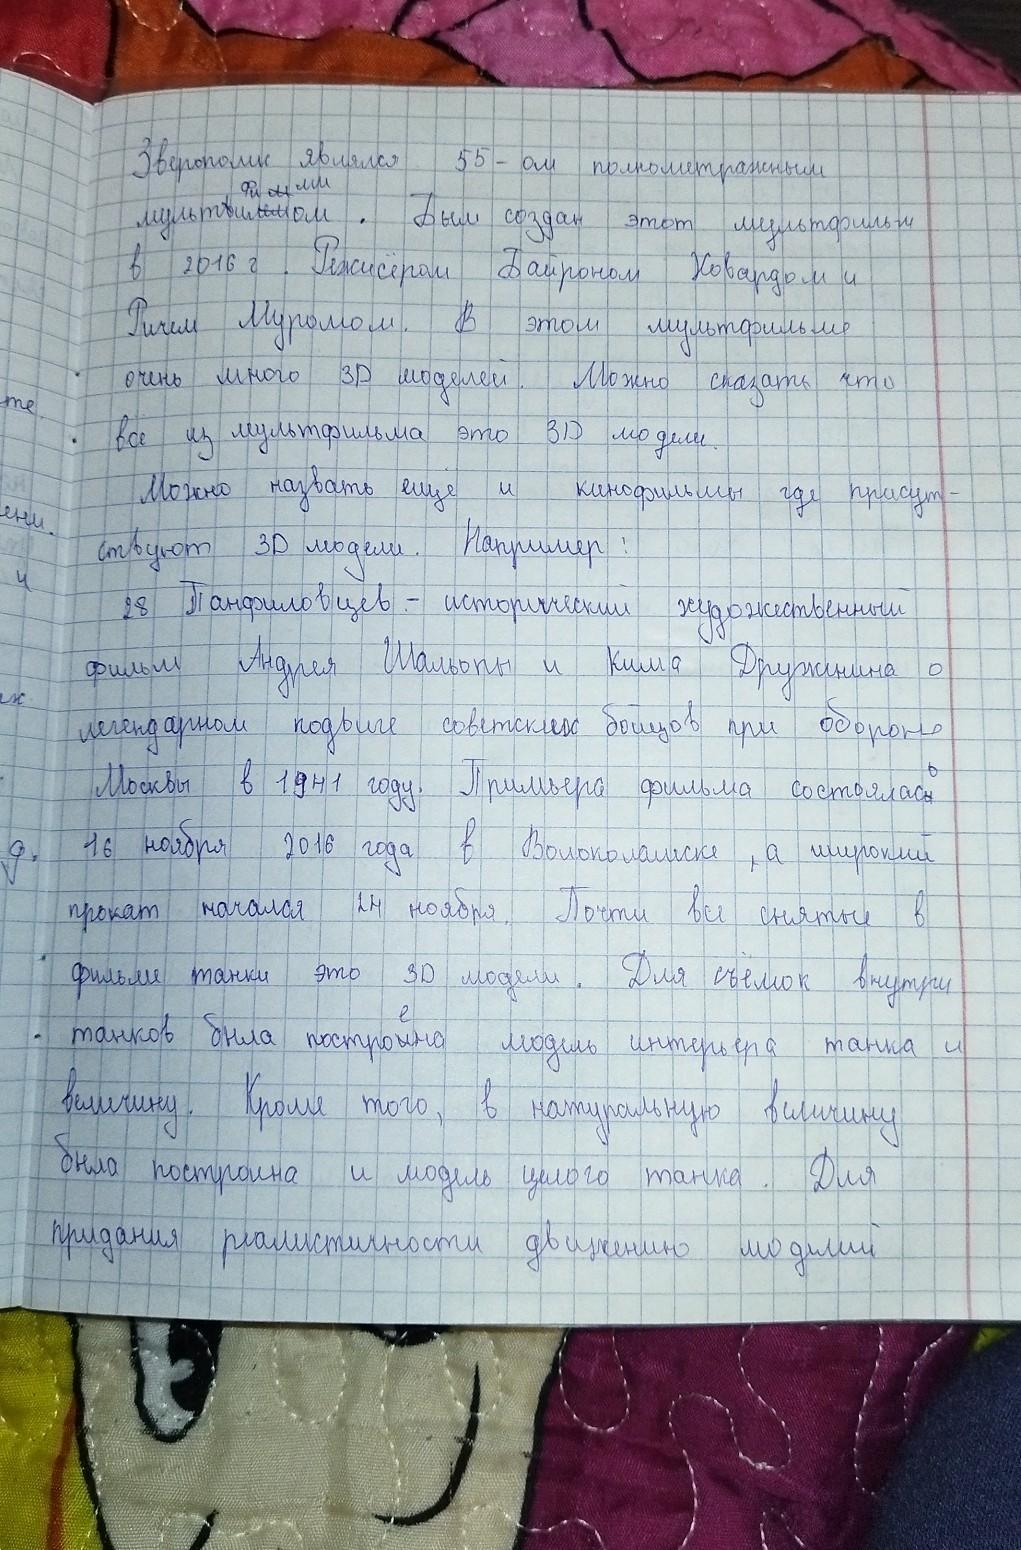 Зверополис являлся 55-ом полнометражным
мультфильмом. Был создан этот мультфильм
в 2016 г. Режисёром Байроном Ховардом и
Ричем Муром. В этом мультфильме
очень много 3D моделей. Можно сказать что
все из мультфильма это 3D модели.
Можно назвать ещё и кинофильмы где присут-
ствуют 3D модели. Например:
28 Панфиловцев - исторический художественный
фильм Андрея Шальопы и Кима Дружинина о
легендарном подвиге советских бойцов при обороне
Москвы в 1941 году. Примьера фильма состоялась
16 ноября 2016 года в Волоколамске, а широкий
прокат начался 24 ноября. Почти все снятые в
фильме танки это 3D модели. Для съёмок внутри
танков была построена модель интерьера танка и
величину. Кроме того, в натуральную величину
была построина и модель целого танка. Для
придания реалистичности движению моделий
те.
ени.
и
д.